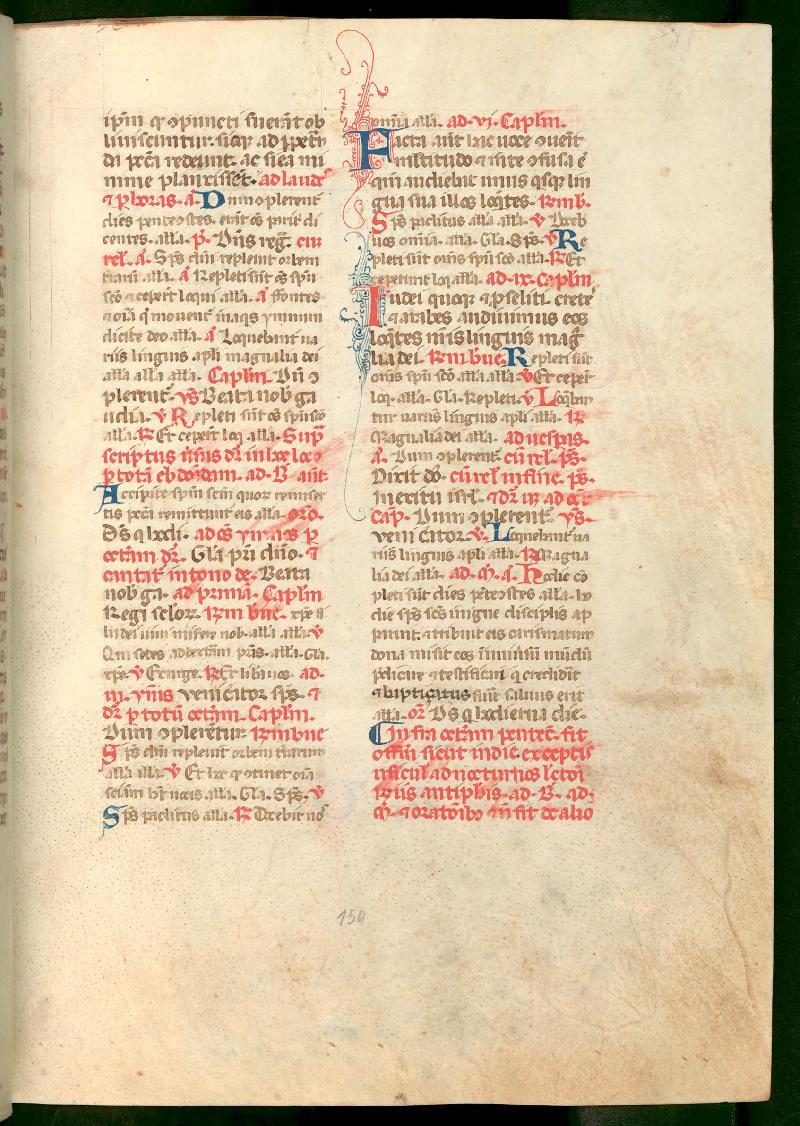 ip̄m q̄ ↄpuncti fuerāt ob
liuiscuntur. sicq; ad ꝑpetrā
da pctā redeunt. ac si ea mi
nime planxiss̄et. ad laudes
⁊ ꝑ horas. a. Dum ↄplerent
dies pentecostes. erāt oēs parit di
centes. alla. p̄. Dn̄s reg. cū
rel. a. Sp̄s dn̄i repleuit orbem
trarū alla. a. Repleti sūt oēs sp̄u
scō ⁊ ceperūt loqui alla. a. ffontes
⁊ oīa q̄ mouent̄ in aqs ymnum
dicite deo alla. a. Loquebantur ua
riis linguis apli magnalia dei
alla alla alla. Caplm. Dū ↄ
plerent. vs̄. Beata nob ga
udia. v̄. Repleti sūt oēs sp̄u scō
alla. R̄. Et ceperūt loq̄ alla. Sup̄
scriptus
ꝑ totā ebdomadam. ad. B. ant.
Accipite sp̄m scm̄ quoꝝ remiser
itis pctā remittunt̄ eis alla. orō.
Ds̄ q̄ hodi. ad oēs ymnos ꝑ
octām dr̄. Gl̄a pr̄i dn̄o. ⁊
cantāt in tono de. Beata
nob ga. ad primā. Caplm
Regi seloꝝ. R̄m bue. xp̄e fi
li dei uiui miserere nob. alla alla. v̄
Qui sedes ad dextām pr̄is. alla. Gl̄a.
xp̄e. v̄. Exurge. R̄. Et libā nos. ad.
iii. ymn̄s veni c̄ator sp̄s. ⁊
dr̄ ꝑ totū octām. Caplm.
Dum ↄplerēt̄ur. R̄m bue
Sp̄s dn̄i repleuit orbem trarum
alla alla. v̄. Et hoc q̄ ↄtinet oīa
sciām h̄t uocis alla. Gl̄a. Sp̄s. v̄.
Sp̄s paclitus alla. R̄. Docebit uo
omīa alla. ad. vi. Caplm.
Facta aūt hac uoce ↄuēit
multitudo ⁊ m̄te ↄfusa ē
qm̄ audiebat unus qsq; lin
gua sua illos loq̄tes. R̄m b.
Sp̄s paclitus alla alla. v̄. Doceb
uos omīa. alla. Gl̄a. Sp̄s. v̄. Re
pleti sūt oms̄ sp̄u scō alla. R̄. Et
ceperunt loq̄ alla. ad. ix. Caplm
Iudei quoq; ⁊ ꝑseliti. crete
⁊ arabes audiuimus eos
loq̄tes nr̄is linguis mag
lia dei. R̄m bue. Repleti sūt
om̄s sp̄u scō alla alla. v̄. Et ceper
loq̄. alla. Gl̄a. Repleti. v̄. Loq̄ban
tur uariis linguis apli alla. R̄
Magnalia dei alla. ad uesꝑas.
a. Dum ↄplerent̄. cū rel. ps̄.
Dixit dō. cū rel. in fine. ps̄.
In exitu isrl.
Cap̄. Dum ↄplerent̄. vs̄.
veni c̄ator. v̄. Loquebant̄ ua
riis linguis apli alla. R̄. Magna
lia dei alla. ad. m̄. a. Hodie cō
pleti sūt dies pētecostes alla. ho
die sp̄s scs̄ in igne disciplis ap
paruit. ⁊ tribuit eis carismatum
dona misit eos in uniūsū mūdū
p̄dicare ⁊ testificari q̄ crediderit
⁊ baptizatus fuit̄ saluus erit
alla. or̄. Ds̄ q̄ hodierna die.
Infra octām pentec̄. fit
offm̄ sicut in die. exceptis
ad nocturnos lctōi
bus antiphis. ad. B. ad.
m̄. ⁊ oratōibꝫ